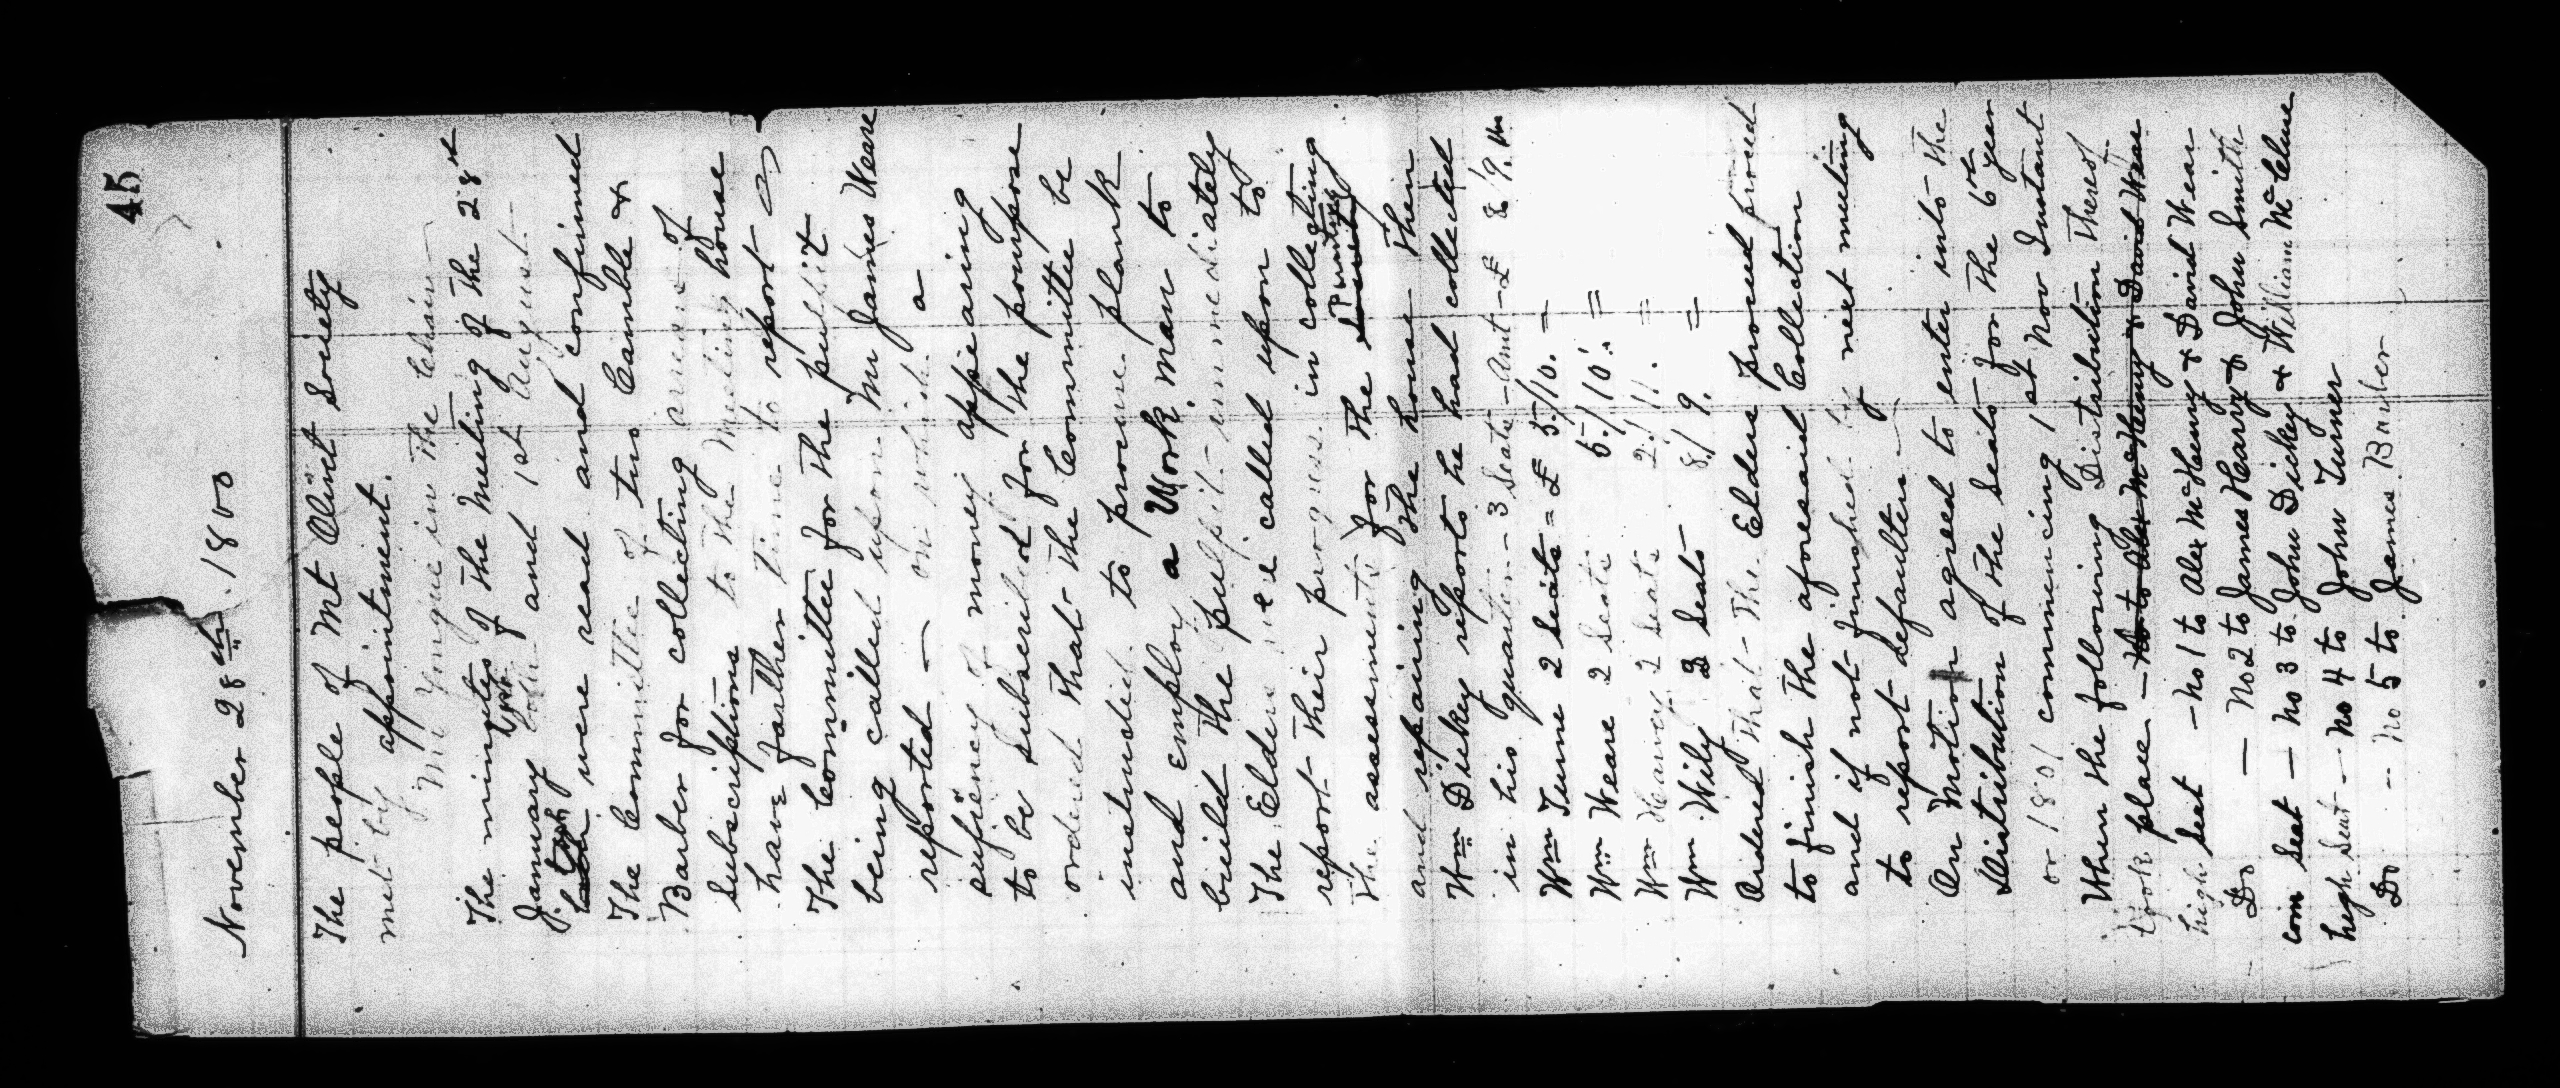 45
November 28th. 1800
The people of Mt Olivet Society
met by appointment.
Mr Yongue in the Chair
The minutes of the Meeting of the 28th
January last and 1st August
were read and confirmed
The Committee of two Camble &
Barber for collecting arrears of
Subscriptions to the Meeting house
have farther time to report
The Committee for the pulpit
being called upon Mr James Weare
reported — on which a
sufiency of money appearing
to be subscribed for the purpose
ordered that the Committee be
instructed to procure plank
and employ a Work man to
build the pulpit immediately
The Elders were called upon to
report their progress in collecting
the assessments for the
and repairing the house then
Wm Dickey reports he had collected
in his quarter - 3 Seats - Amt - £ 8/9.
Wm Turne 2 Seats = £ 5./10. =
Wm Weare 2 Seats 5./10. =
Wm Heaney 2 Seats 2./11. =
Wm Wily 3 Seats 8/9. =
Ordered that the Elders proceed
to finish the aforesaid Collection
and if not finished by next meeting
to report defaulters
On Motion agreed to enter into the
Distribution of the Seats for the 6th year
or 1801 commencing 1st Nov Instant
When the following Distribution thereof
took place - No to Alex McHenry & David Wear
high Seat - No 1 to Alex McHenry & David Wear
Do — No 2 to James Harry & John Smith
com Seat — No 3 to John Dickey & William McClure
high Seat — No 4 to John Turner
Do -- No 5 to James Barber